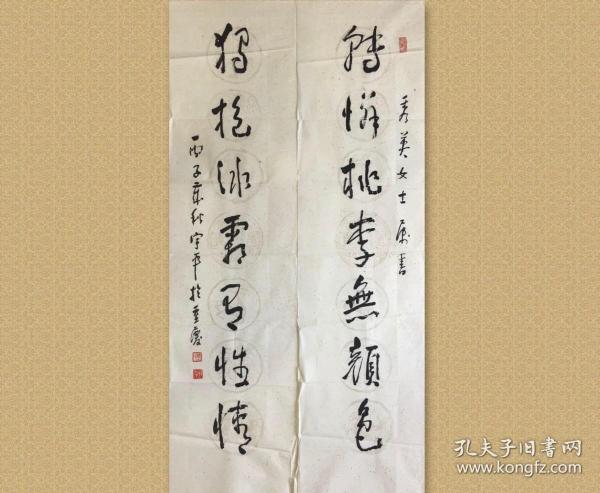 秀英女士属书
转怜桃李無颜色
独抱冰霜有性情
丙子年秋宇平于重慶
孔夫子旧書网
www.kongfz.com